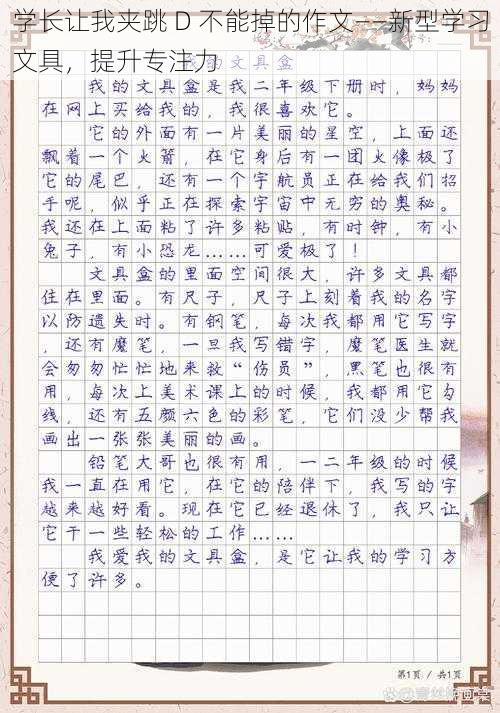 学长让我夹跳 D 不能掉的作文——新型学习
文具，提升专注力
我的文具盒
我的文具盒是我二年级下册时，妈妈
在网上买给我的，我很喜欢它。
它的外面有一片美丽的星空，上面还
飘着一个火箭，在它身后有一团火像极了
它的尾巴，还有一个宇航员正在给我们招
手呢，似乎正在探索宇宙中无穷的奥秘。
我还在上面粘了许多粘贴，有时钟，有小
兔子，有小恐龙……可爱极了！
文具盒的里面空间很大，许多文具都
住在里面。有尺子，尺子上刻着我的名字
以防遗失时。有钢笔，每次我都用它写字
，还有魔笔，一旦我写错字，魔笔医生就
会匆匆忙忙地来救“伤员”，黑笔也很有
用，每次上美术课上的时候，我都用它勾
线，还有五颜六色的彩笔，它们没少帮我
画出一张张美丽的画。
铅笔大哥也很有用，一二年级的时候
我一直在用它，在它的陪伴下，我写的字
越来越好看。现在它已经退休了，我只让
它干一些轻松的工作……
我爱我的文具盒，是它让我的学习方
便了许多。
第1页 / 共1页